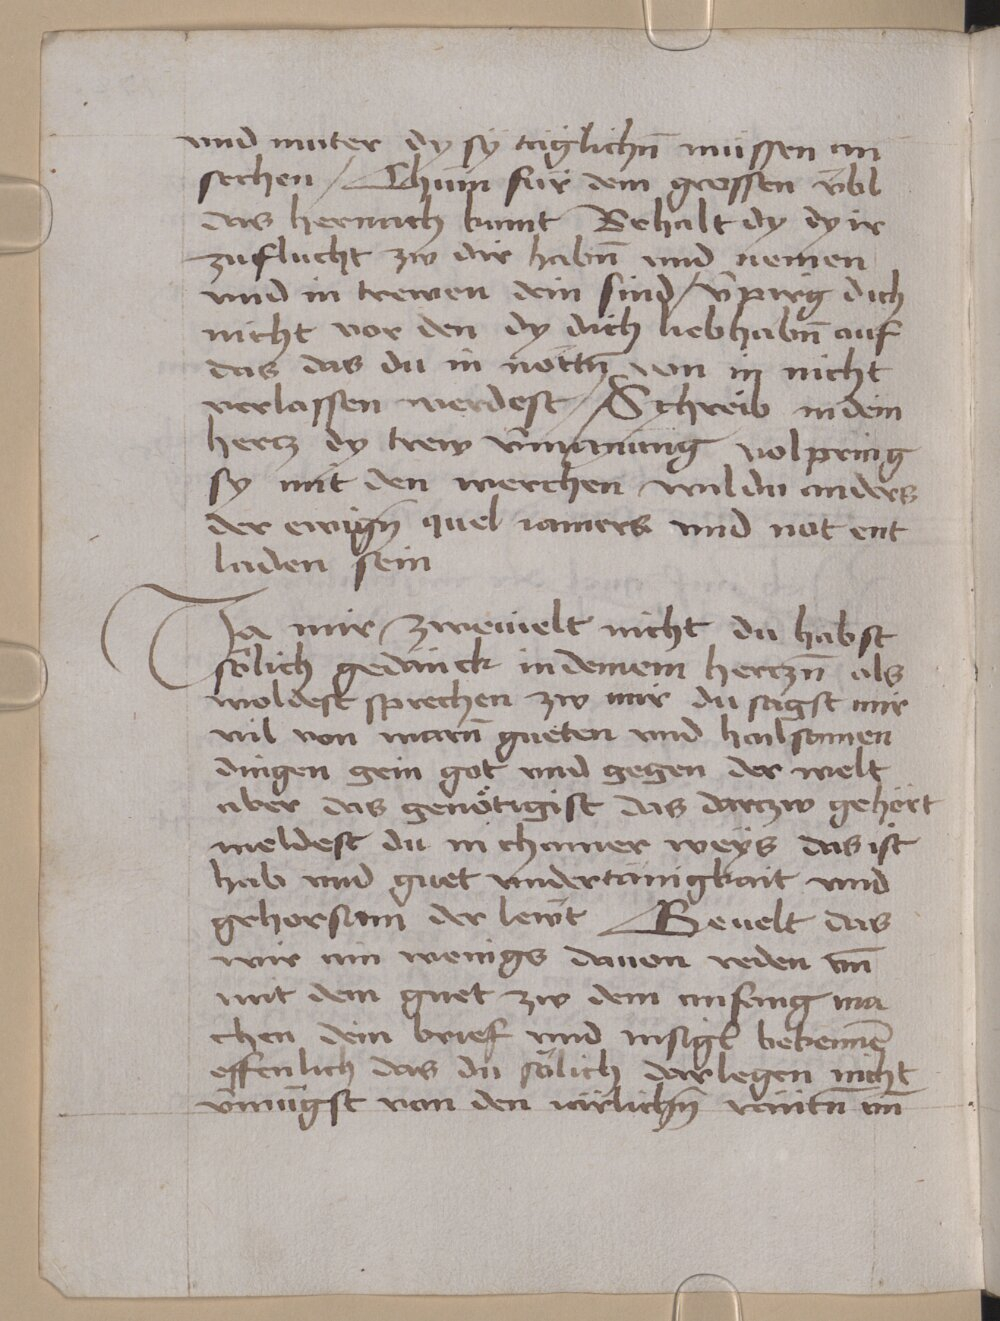 vnd muter dy sÿ täglichn̄ müssen an
sechen / Chüm für dem grossen v̈bl
das hernach kumt Behalt dy dy ir
zuflucht zw dir habn̄ vnd nemen
vnd in trewen dein sind / v̄pirg dich
nicht vor den dy dich liebhabn̄ auf
das das du in nöttn̄ von in nicht
verlassen werdest / Schreib in dein
hertz dy trew v̄manung volpring
sy mit den werchen wildu anders
der ewign̄ quel iamers vnd not ent
laden sein
Ja mir zweiuelt nicht du habst
sölich gedänck in deinem hertzn̄ als
woldest sprechen zw mir du sagst mir
vil von warn̄ gueten vnd hailsamen
dingen gein got vnd gegen der welt
aber das genötigist das darczw gehört
meldest du in chainer weÿs das ist
hab vnd guet vndertänigkait vnd
gehorsam der lewt Beuelt das
wir ain wenigs dauon reden vn̄
mit dem guet zw dem anfang ma
chen dein brief vnd insigl bekennē
offenlich das du sölich darlegen nicht
v̄mügst von den järlichn̄ räntn̄ vn̄